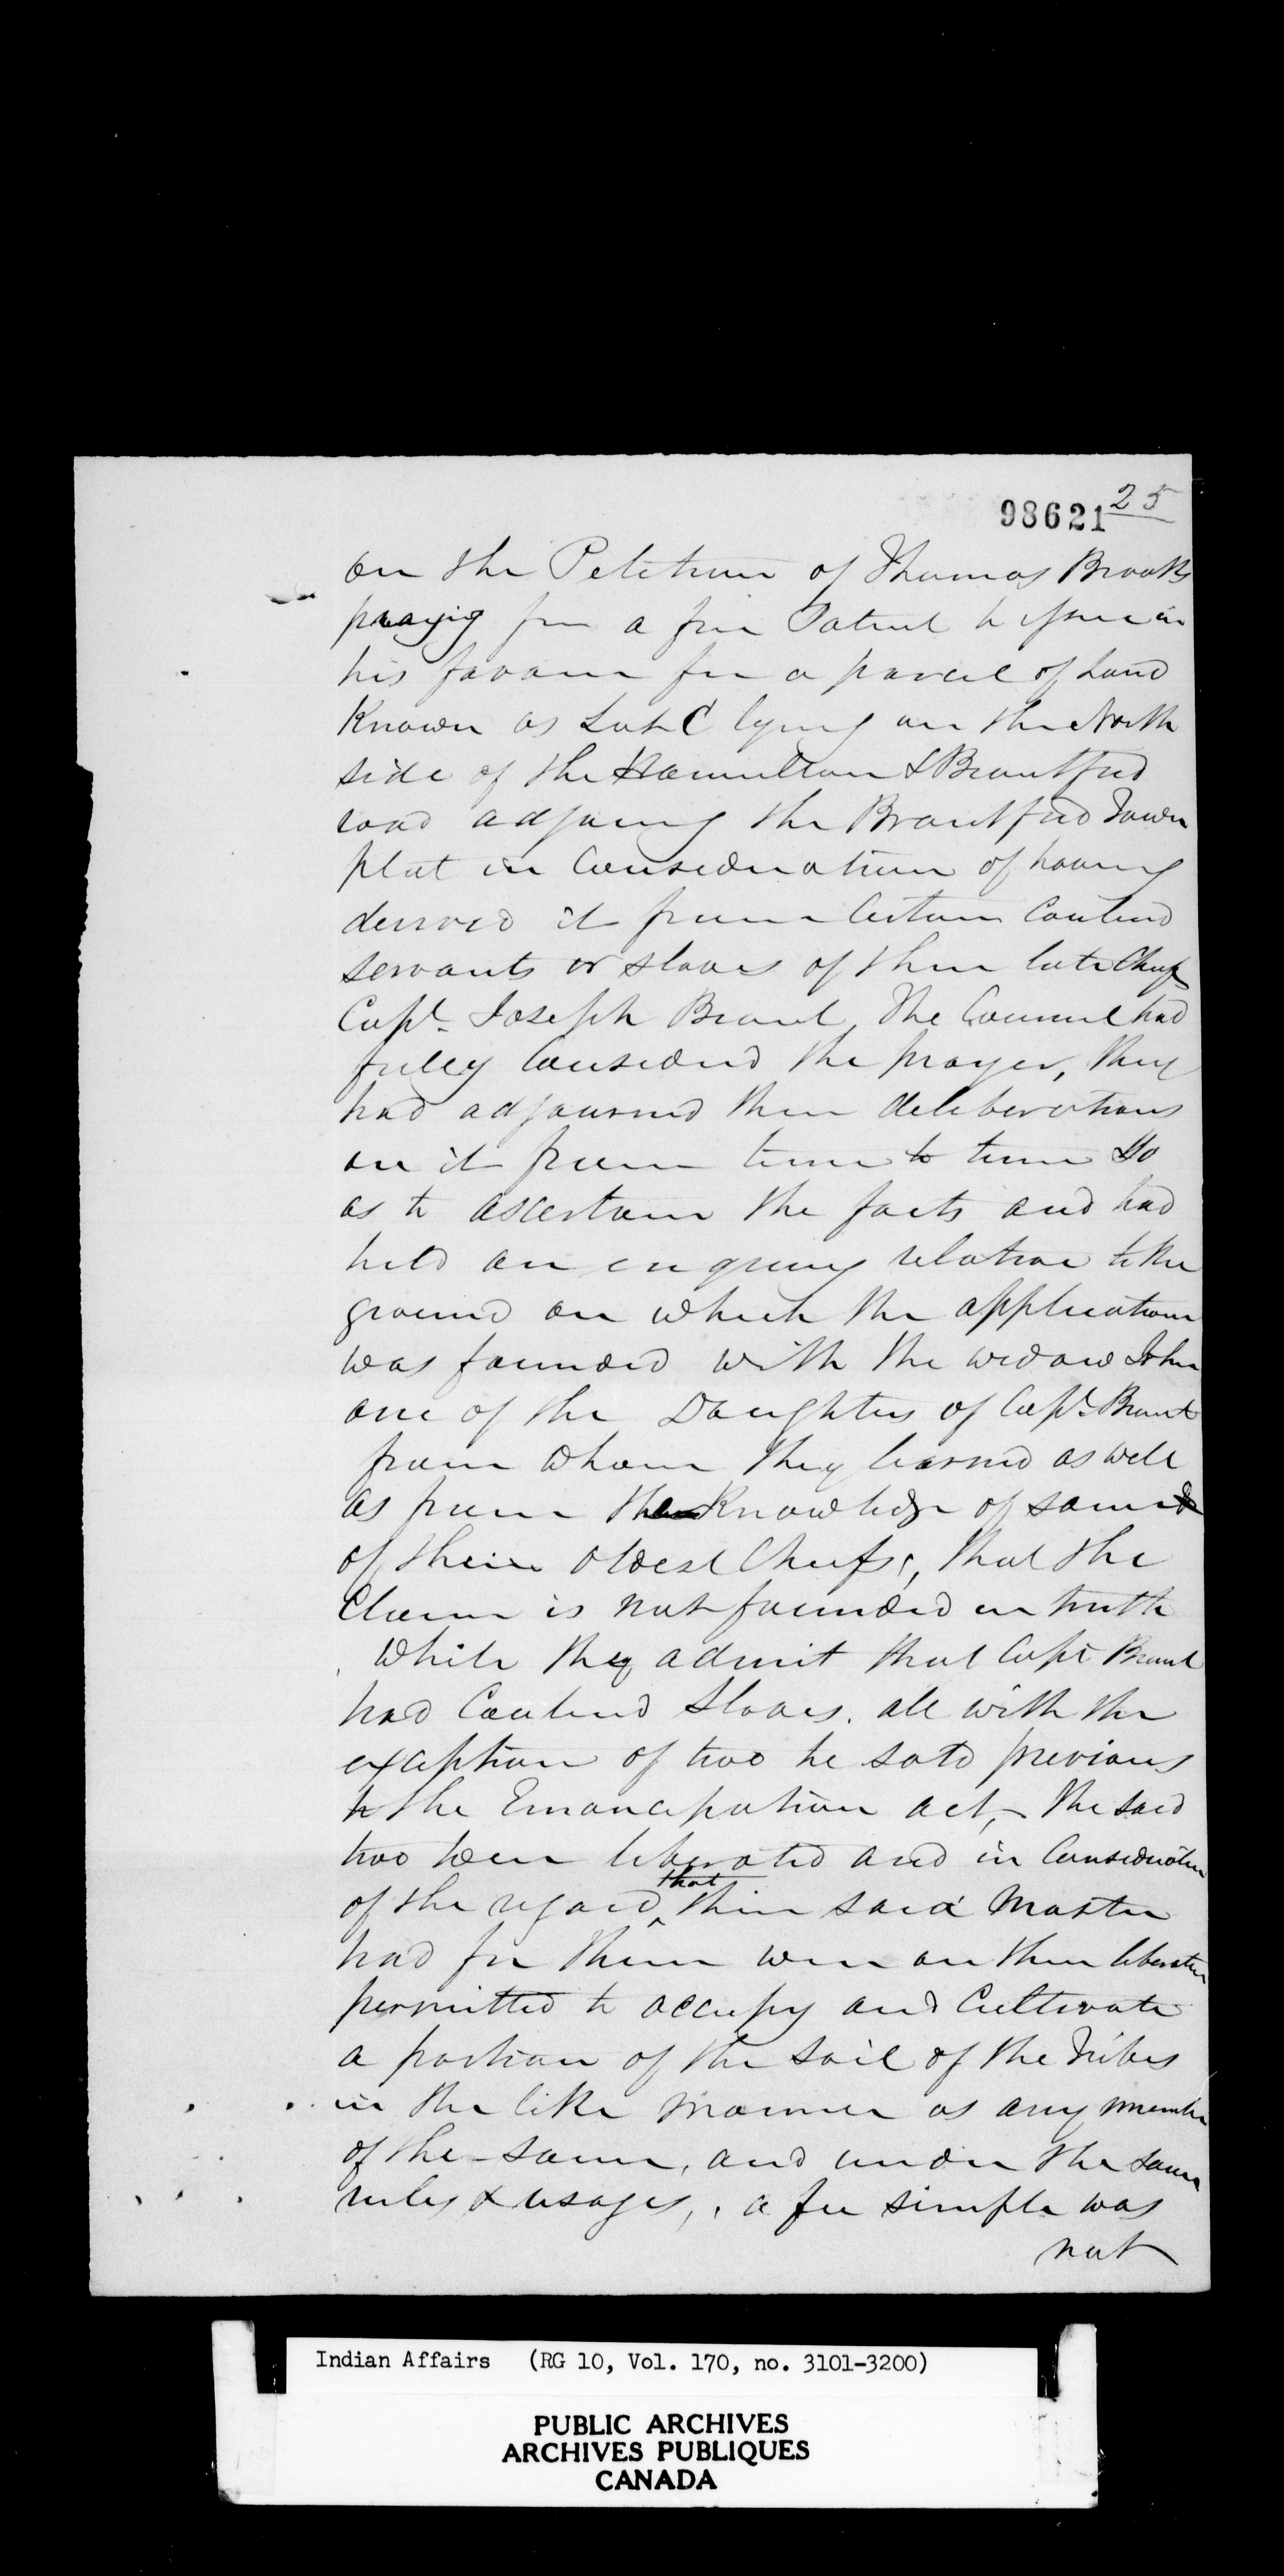 25
98621
on the Petition of Thomas Brooks
praying for a free Patent to issue in
his favour for a parcel of Land
Known as Lot C lying on the North
side of the Hamilton & Brantford
road adjoing the Brantford Town
plot in Consideration of having
derived it from Certain Coulerd
servants or slaves of their late Chief
Capt. Joseph Brant. The Council had
fully Considered the prayer, they
had adjourned their deliberations
on it from time to time So
as to ascertain the facts and had
held an enquiry relative to the
ground on which the application
was founded with the widow John
one of the Daughters of Capt. Brant
from whom they learned as well
as from the Knowledge of some
of their oldest Chiefs, that the
Claim is not founded on truth
While they admit that Capt Brant
had Coulerd Slaves. all with the
exception of two he sold previous
to the Emancipation act, - the said
two were liberated and in Consideration
of the regard that their said Master
had for them were on their liberation
permitted to occupy and Cultivate
a portion of the soil of the Tribes
in the like manner as any member
of the same, and under the same
rules & usages, a fee simple was
not
Indian Affairs (RG 10, Vol. 170, no. 3101-3200)
PUBLIC ARCHIVES
ARCHIVES PUBLIQUES
CANADA